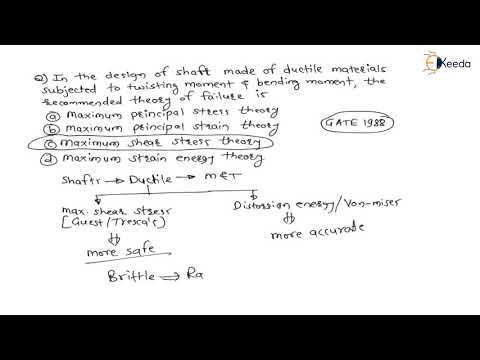 EKeeda
Q) In the design of shaft made of ductile materials
subjected to twisting moment & bending moment, the
recommended theory of failure is
(a) Maximum principal stress theory
(b) Maximum principal strain theory
GATE 1988
(c) Maximum shear stress theory
(d) Maximum strain energy theory
Shafts → Ductile → M & T
max. shear stress
[Guest/Tresca's]
Distorsion energy/Von-miser
more safe
more accurate
Brittle ⇒ Ra